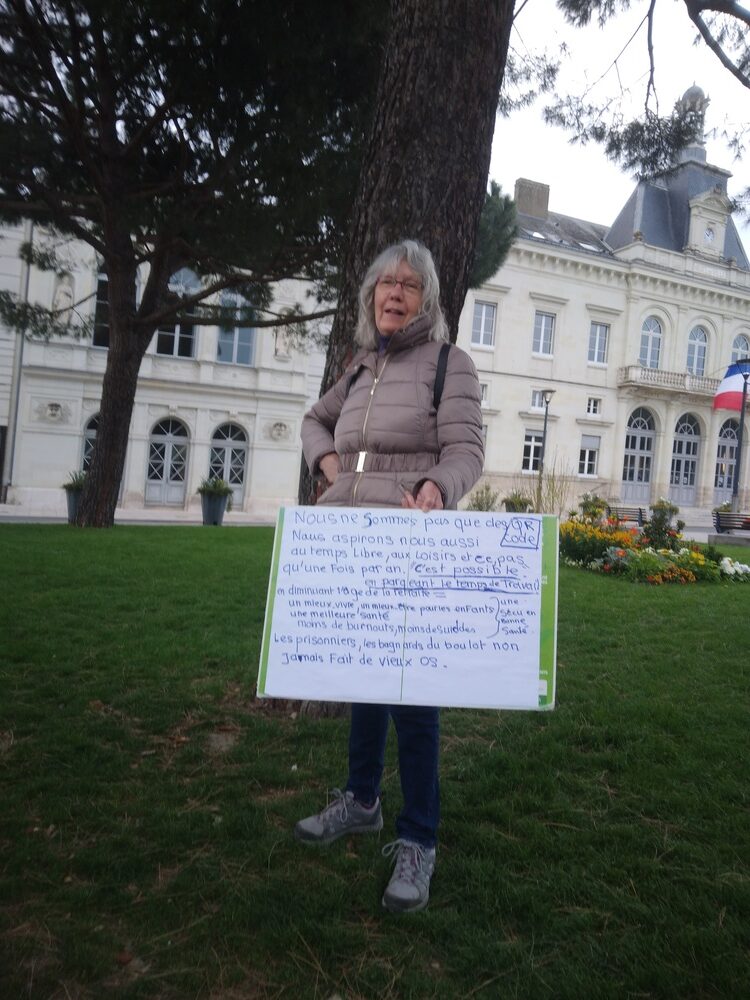 Nous ne sommes pas que des QR code
Nous aspirons nous aussi
au temps libre, aux loisirs et ce, pas
qu'une fois par an. c'est possible
en pargeant le temps de travail
en diminuant l'âge de la retraite =
un mieux vivre, un mieux être pour les enfants
une meilleure santé
moins de burnouts, moins de suicides
une sécu en bonne santé.
Les prisonniers, les bagnards du boulot non
jamais fait de vieux os.